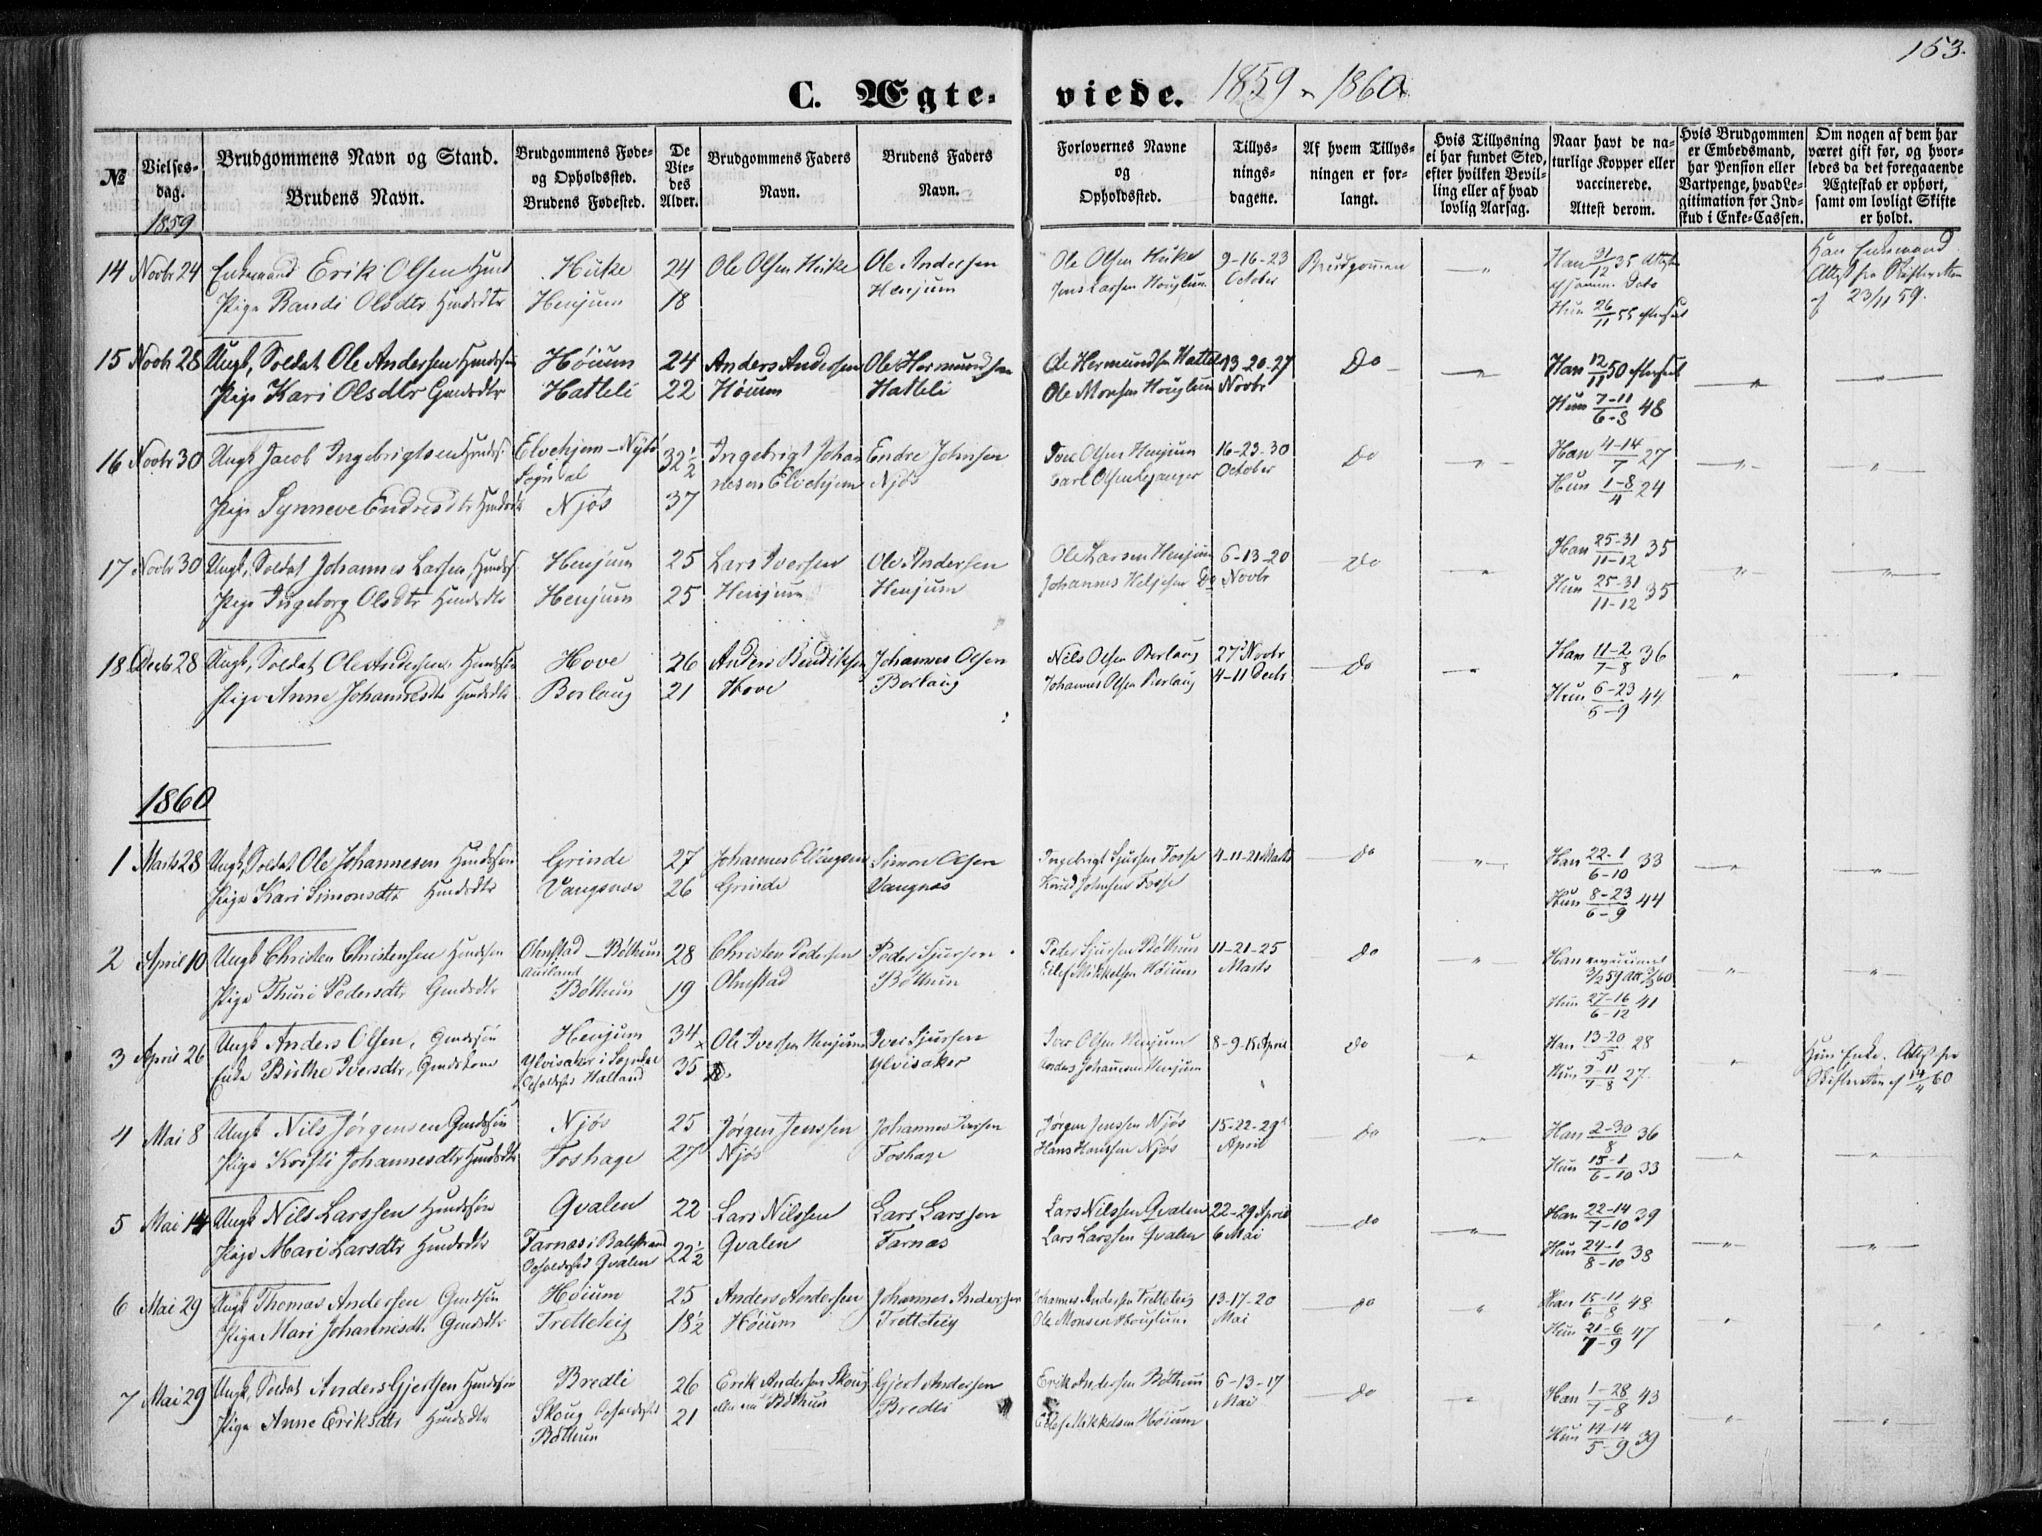 153.
C. Ægte- viede. 1859 - 1860
№
Vielses-dag.
Brudgommens Navn og Stand.
Brudens Navn.
Brudgommens Føde- og Opholdssted.
Brudens Fødested.
De Vie-des Alder.
Brudgommens Faders Navn.
Brudens Faders Navn.
Forlovernes Navne og Opholdssted.
Tillys-nings-dagene.
Af hvem Tillys-ningen er for-langt.
Hvis Tillysning ei har fundet Sted, efter hvilken Bevil-ling eller af hvad lovlig Aarsag.
Naar havt de na-turlige Kopper eller vaccinerede.
Attest derom.
Hvis Brudgommen er Embedsmand, har Pension eller Vartpenge, hvad Le-gitimation for Ind-skud i Enke-Cassen.
Om nogen af dem har været gift før, og hvor-ledes da det foregaaende Ægteskab er ophørt, samt om lovligt Skifte er holdt.
1859
14 Novbr 24 Enkemand Erik Olsen Huke 24 Ole Olsen Huke Ole Andersen Ole Olsen Huke 9-16-23 Brudgommen Han 31/12 35 Han Enkemand
Pige Randi Olsdtr Henjum 18 Henjum Jens Larsen October Hun 26/11 55 23/11 59.
15 Novbr 28 Ungk, Soldat Ole Andersen Høium 24 Anders Andersen Ole Hermundsen Ole Hermundsen 13-20-27 Do Han 12/11 50
Pige Kari Olsdtr Hatteli 22 Høium Hatteli Ole Monsen Novbr Hun 7-11/6-8 48
16 Novbr 30 Ungk Jacob Ingebrigtsen Elvehjem 32½ Ingebrigt Johan Endre Johnsen Olsen Henjum 16-23-30 Do Han 4-14/7 27
Sogndal nesen Elvehjem Njøs Carl Olsen October Hun 1-8/4 24
Pige Synneve Endresdtr Njøs 37
17 Novbr 30 Ungk, Soldat Johannes Larsen Henjum 25 Lars Iversen Ole Andersen Ole Larsen Henjum 6-13-20 Do Han 25-31/11-12 35
Pige Ingeborg Olsdtr Henjum 25 Henjum Henjum Johannes Do Novbr Hun 25-31/11-12 35
18 Decbr 28 Ungk, Soldat Ole Andersen Hove 26 Anders Johannes Olsen Nils Olsen Borlaug 27 Novbr Do Han 11-2/7-8 36
Pige Anne Johannesdtr Borlaug 21 Hove Borlaug Johannes Olsen Borlaug 4-11 Decbr Hun 6-23/6-9 44
1860
1 Marts 28 Ungk, Soldat Ole Johannesen Grinde 27 Johannes Simon Olsen Ingebrigt Sjursen Fosse 4-11-21 Marts Do Han 22-1/6-10 33
Pige Kari Simonsdtr Vangsnæs 26 Grinde Vangnæs Knud Johnsen Fosse Hun 8-23/6-9 44
2 April 10 Ungk Christen Christensen Olmstad - Bøthun 28 Christen Pedersen Peder Sjursen Peder Sjursen Bøthun 11-21-25 Do Han
Aurland Olmstad Bøthun Mikkelsen Høium Marts
Pige Thuri Pedersdtr Bøthun 19 Hun 27-16/6-12 41
3 April 26 Ungk Anders Olsen, Henjum 34 Ole Iversen Henjum Iver Sjursen Iver Olsen Henjum 8-9-15 April Do Han 13-20/5 28 Hun Enke.
Enke Birthe Iversdtr Ylvisaker i Sogndal 35 Ylvisaker Johannesen Henjum Hun 7-11/7-8 27. 14/4 60
Halland
4 Mai 8 Ungk Nils Jørgensen Njøs 25 Jørgen Jenssen Johannes Iversen Jørgen Jenssen Njøs 15-22-29 Do Han 2-30/8 36
Pige Kristi Johannesdtr Foshage 27 Njøs Foshage Hans Hanssen Njøs April Hun 15-1/6-10 33
5 Mai 14 Ungk Nils Larssen Qvalen 22 Lars Nilssen Lars Larssen Lars Nilssen Qvalen 22-29 April Do Han 22-14/7-10 39
Pige Mari Larsdtr Farnæs i Balestrand 22½ Qvalen Farnæs Lars Larssen Qvalen 6 Mai Hun 24-1/8-10 38
Qvalen
6 Mai 29 Ungk Thomas Andersen Høium 25 Anders Andersen Johannes Andersen Johannes Andersen Tretteteig 13-17-20 Do Han 15-11/6-8 48
Pige Mari Johannesdtr Tretteteig 18½ Høium Tretteteig Ole Monsen Mai Hun 21-6/7-9 47
7 Mai 29 Ungk, Soldat Anders Gjertsen Bredli 26 Erik Andersen Skoug Gjert Andersen Erik Andersen Bøthun 6-13-17 Do Han 1-28/7-8 43
Pige Anne Eriksdtr Skoug 21 Bøthun Bredli Mikkelsen Høium Mai Hun 14-14/5-9 39
Bøthun